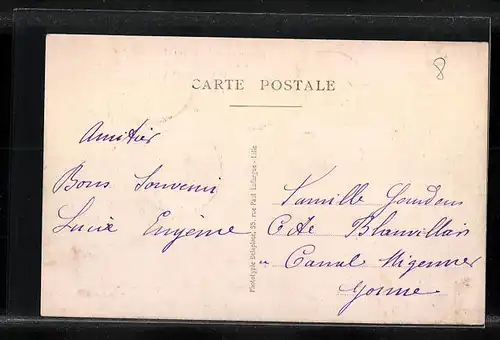 8
CARTE POSTALE
Amitier
Bons Souvenir
Lucie Eugène
Phototypie Délepine, 55, rue Paul Lafargue - Lille
Famille Gourdon
Cité Blanvillain
Canal Migennes
Yonne